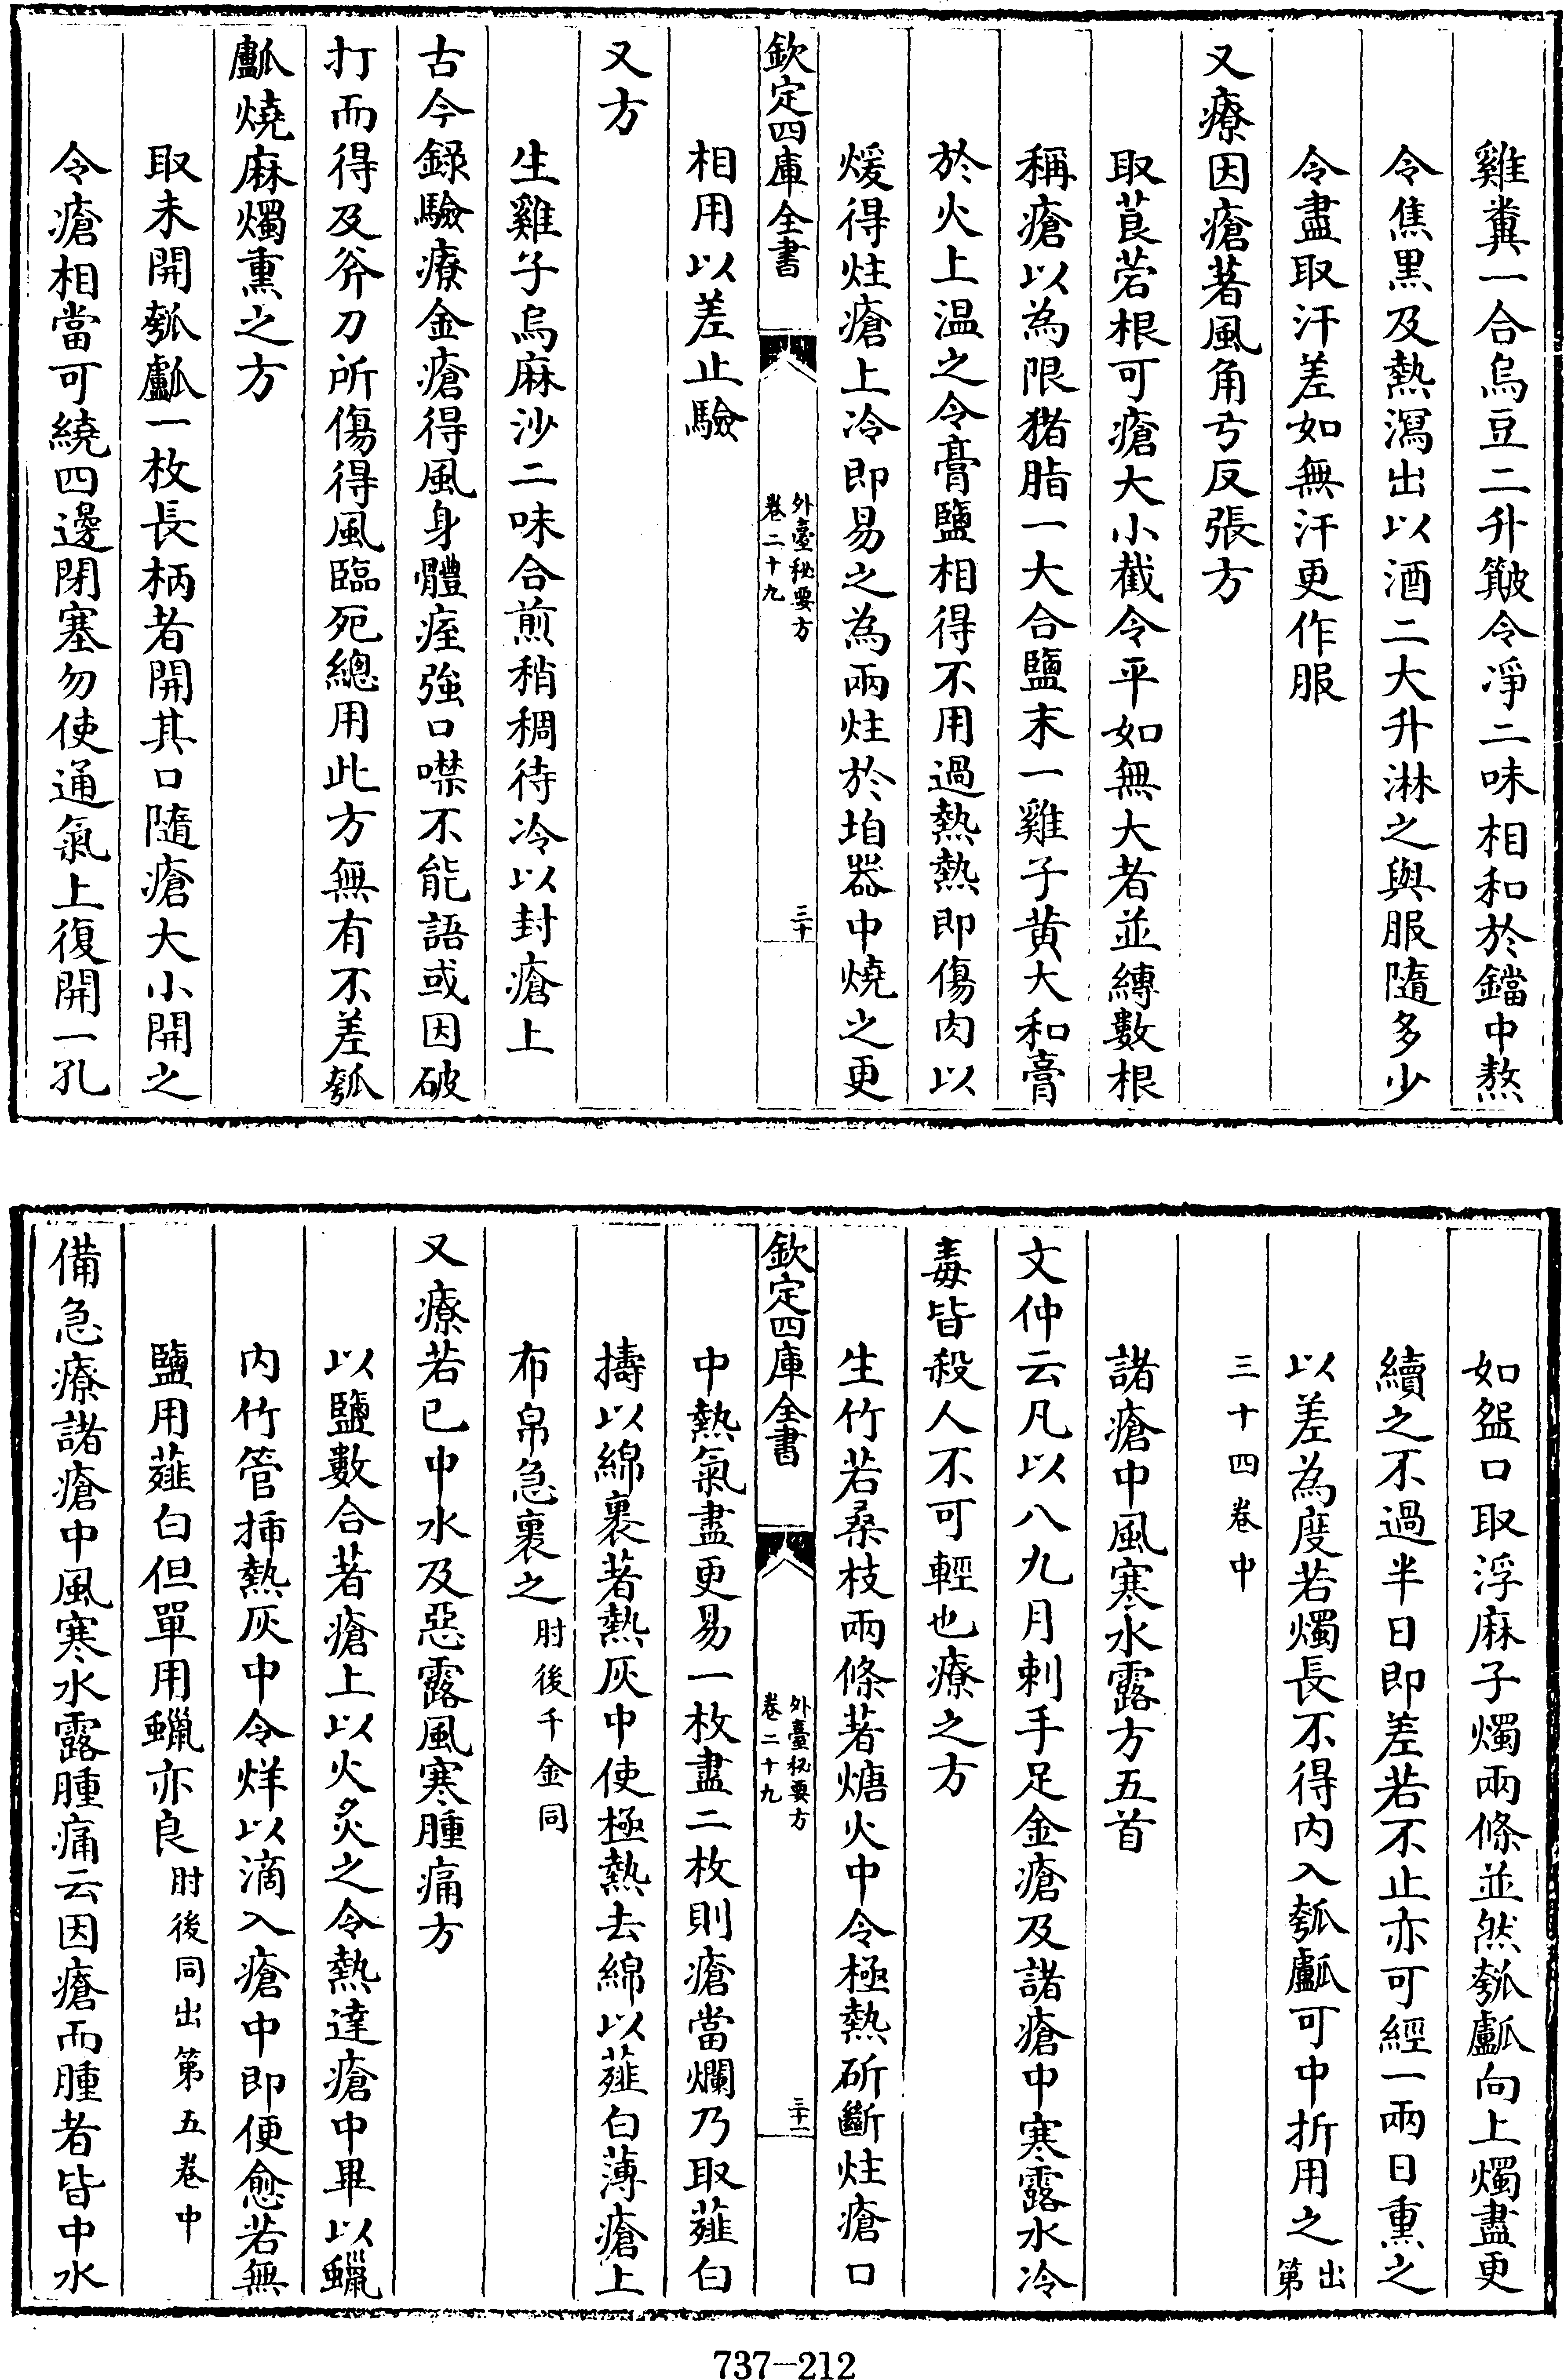 雞糞一合烏豆二升簸令凈二味相和於鐺中熬
令焦黑及熱瀉出以酒二大升淋之與服隨多少
令盡取汗差如無汗更作服
又療因瘡著風角弓反張方
取莨菪根可瘡大小截令平如無大者並縛數根
稱瘡以為限猪脂一大合鹽末一雞子黄大和膏
於火上温之令膏鹽相得不用過熱熱即傷肉以
煖得炷瘡上冷即易之為兩炷於垍器中燒之更
欽定四庫全書
外臺秘要方
卷二十九
三十
相用以差止驗
又方
生雞子烏麻沙二味合煎稍稠待冷以封瘡上
古今録驗療金瘡得風身體痙強口噤不能語或因破
打而得及斧刀所傷得風臨死總用此方無有不差瓠
㼖燒麻燭熏之方
取未開瓠㼖一枚長柄者開其口隨瘡大小開之
令瘡相當可繞四邊閉塞勿使通氣上復開一孔
如盌口取浮麻子燭兩條並然瓠㼖向上燭盡更
續之不過半日即差若不止亦可經一兩日熏之
以差為度若燭長不得内入瓠㼖可中折用之出第
三十四卷中
諸瘡中風寒水露方五首
文仲云凡以八九月刺手足金瘡及諸瘡中寒露水冷
毒皆殺人不可輕也療之方
生竹若桑枝兩條著煻火中令極熱斫斷炷瘡口
欽定四庫全書
外臺秘要方
卷二十九
三十一
中熱氣盡更易一枚盡二枚則瘡當爛乃取薤白
擣以綿裹著熱灰中使極熱去綿以薤白薄瘡上
布帛急裹之肘後千金同
又療若已中水及惡露風寒腫痛方
以鹽數合著瘡上以火炙之令熱達瘡中畢以蠟
内竹管揷熱灰中令烊以滴入瘡中即便愈若無
鹽用薤白但單用蠟亦良肘後同出第五卷中
備急療諸瘡中風寒水露腫痛云因瘡而腫者皆中水
737-212